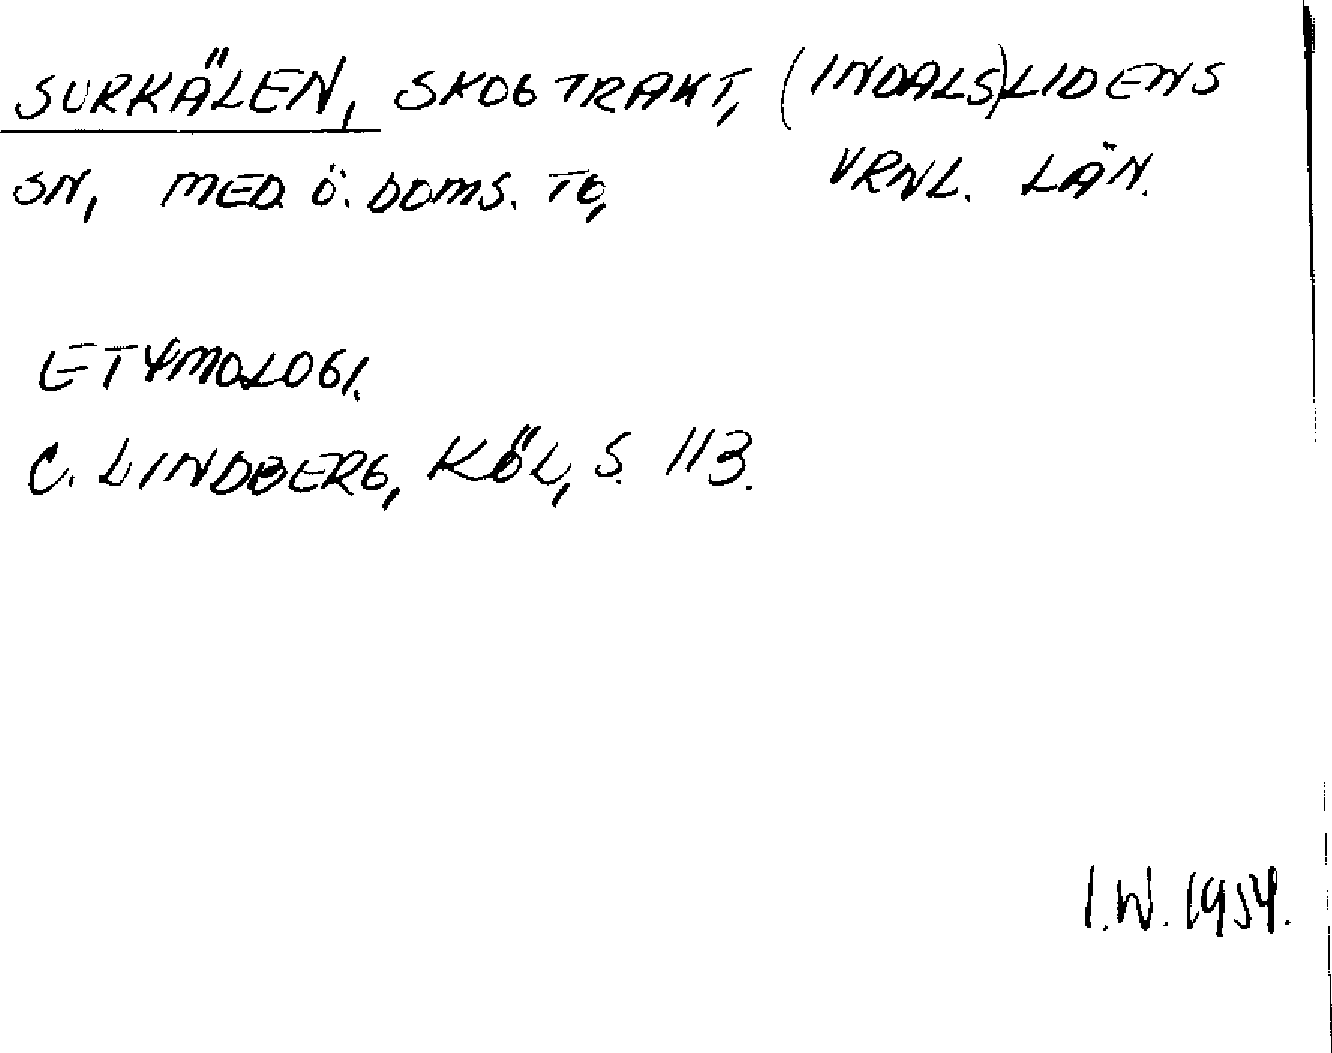 SURKÄLEN, SKOGTRAKT, (INDALS)LIDENS
SN, MED. Ö. DOMS. TG, VRNL. LÄN.
ETYMOLOGI.
C. LINDBERG, KÖL, S. 113.
I.W. 1954.